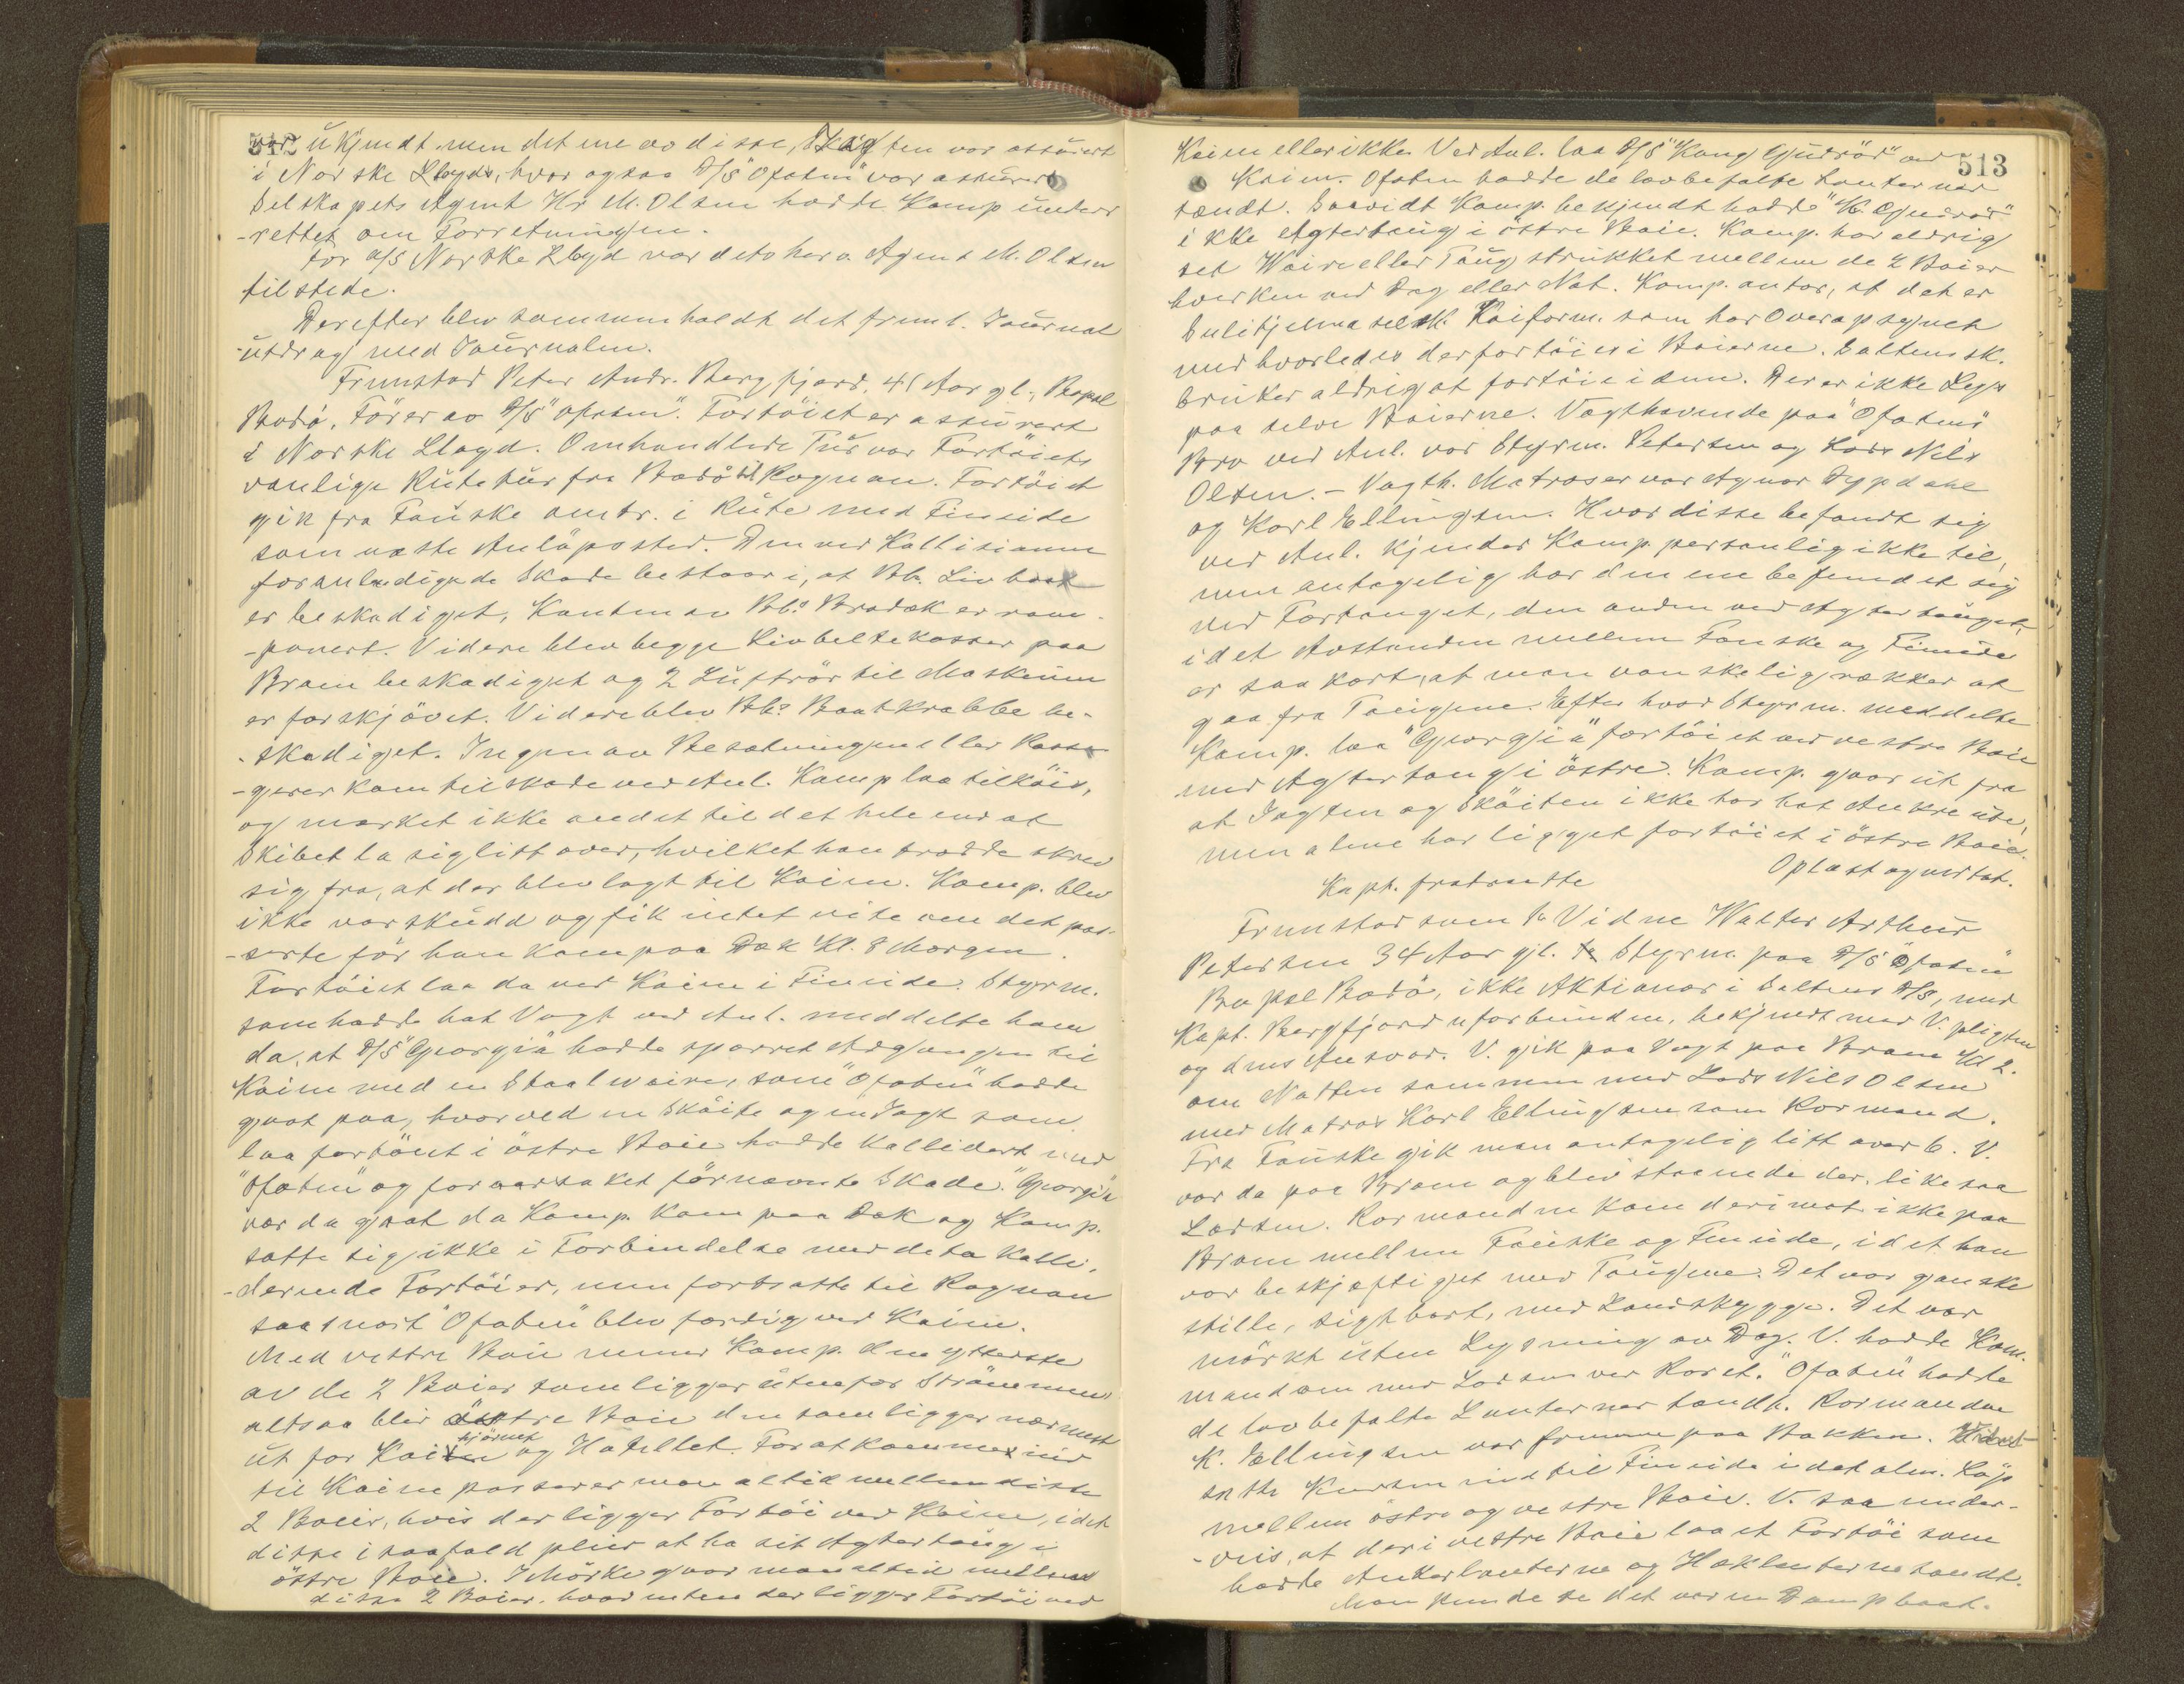 512
var ukjendt. men det ene av disse, Jagten var assurert
i Norske Lloyd, hvor ogsaa D/S "Ofoten" var assurert
Selskapets Agent Hr M. Olsen hadde Komp under-
-rettet om Forretningen.
For A/S Norske Lloyd var deto her v. Agent M. Olsen
tilstede.
Derefter blev sammenholdt det freml. Journal
-utdrag med Journalen.
Fremstod Peter Andr. Bergfjord, 41 Aar gl., Bopæl
Bodö, Förer av D/S "Ofoten". Fortöiet er assurert
i Norske Lloyd. Omhandlede Tur var Fartöiets
vanlige Rutetur fra Bodö til Rognan. Fartöiet
gik fra Fauske omtr. i Rute med Finneide
som næste Anlöpssted. Den ved Kollisionen
foranledigede Skade bestaar i, at Bb. Livbaat
er beskadiget, Kanten av Bbs Brodæk er ram-
-ponert. Videre blev begge Livbeltekasser paa
Broen beskadiget og 2 Luftrör til Maskinen
er forskjövet. Videre blev Bbs Baatkrabbe be-
-skadiget. Ingen av Besætningen eller Passa-
-gerer kom til skade ved Anl. Komp laa tilköis,
og mærket ikke andet til det hele end at
Skibet la sig litt over, hvilket han trodde skrev
sig fra, at der blev lagt til Kaien. Komp. blev
ikke varskudd og fik intet vite om det pas-
-serte för han kom paa Dæk Kl. 8 Morgen.
Fartöiet laa da ved Kaien i Finneide. Styrm.
som hadde hat Vagt ved Anl. meddelte ham
da, at D/S "Georgia" hadde sperret Adgangen til
Kaien med en Staalwaire, som "Ofoten" hadde
gaat paa, hvorved en Sköite og en Jagt som
laa fortöiet i östre Boie hadde kollidert med
"Ofoten" og foraarsaket förnævnte Skade. "Georgia"
var da gaat da Komp. kom paa Dæk og Komp.
satte sig ikke i Forbindelse med de to kolli-
-derende Fartöier, men fortsatte til Rognan
saasnart "Ofoten" blev færdig ved Kaien.
Med vestre Boie mener Komp. den ytterste
av de 2 Boier som ligger utenfor Strömmen
altsaa blir östre Boie den som ligger nærmest
ut for Kaihjörnet og Hotellet. For at komme ind
til Kaien passerer man altid mellem disse
2 Boier, hvis der ligger Fartöi ved Kaien, idet
disse i saafald pleier at ha sit Agtertaug i
östre Boie. I Mörke gaar man altid mellem
disse 2 Boier, hvad enten der ligger Fartöi ved
513
Kaien eller ikke. Ved Anl. laa D/S "Kong Gudröd" ved
Kaien. Ofoten hadde de lovbefalte Lanterner
tændt. Saavidt Komp. bekjendt hadde "K. Gudröd"
ikke Agtertaug i östre Boie. Komp. har aldrig
set Waire eller Taug strukket mellem de 2 Boier
hverken ved Dag eller Nat. Komp. antar, at det er
Sulitjelma selsk. Kaiform. som har Overopsynet
med hvorledes der fortöies i Boierne. Saltens sk.
bruker aldrig at fortöie i dem. Der er ikke Lys
paa selve Boierne. Vagthavende paa "Ofotens"
Bro ved Anl. var Styrm. Petersen og Lods Nils
Olsen. - Vagth. Matroser var Agnar Dypdahl
og Karl Ellingsen. Hvor disse befandt sig
ved Anl. kjender Komp. personlig ikke til,
men antagelig har den ene befundet sig
ved Fortauget, den anden ved Agtertauget,
idet Avstanden mellem Fauske og Finneide
er saa kort, at man vanskelig rækker at
gaa fra Taugene. Efter hvad Styrm. meddelte
Komp. laa "Georgia" fortöiet ved vestre Boie
med Agtertaug i östre. Komp. gaar ut fra
at Jagten og Sköiten ikke har hat Ankre ute,
men alene har ligget fortöiet i östre Boie.
Oplæst og vedtat.
Kapt. fratraadte
Fremstod som 1. Vidne Walter Arthur
Petersen 34 Aar gl. Styrm. paa D/S "Ofoten"
Bopæl Bodö, ikke Aktionær i Saltens D/S, med
Kapt. Bergfjord uforbunden, bekjendt med V. pligten
og dens Ansvar. V. gik paa Vagt paa Broen Kl 2.
om Natten sammen med Lods Nils Olsen
med Matros Karl Ellingsen som Rormand.
Fra Fauske gik man antagelig litt over 6. V.
var da paa Broen og blev staaende der, likesaa
Lodsen. Rormanden kom derimot ikke paa
Broen mellem Fauske og Finneide, idet han
var beskjæftiget med Taugene. Det var ganske
stille, sigtbart, med Landskygge. Det var
mörkt uten Lysning av Dag. V. hadde Kom-
mandoen med Lodsen ved Roret. "Ofoten" hadde
de lovbefalte Lanterner tændt. Rormanden
K. Ellingsen var fremme paa Bakken.
satte Kursen ind til Finneide i det alm. Löp
mellem östre og vestre Boie. V. saa under-
-veis, at der i vestre Boie laa et Fartöi som
hadde Ankerlanterne og Hæklanterne tændt.
Man kunde se det var en Dampbaat.